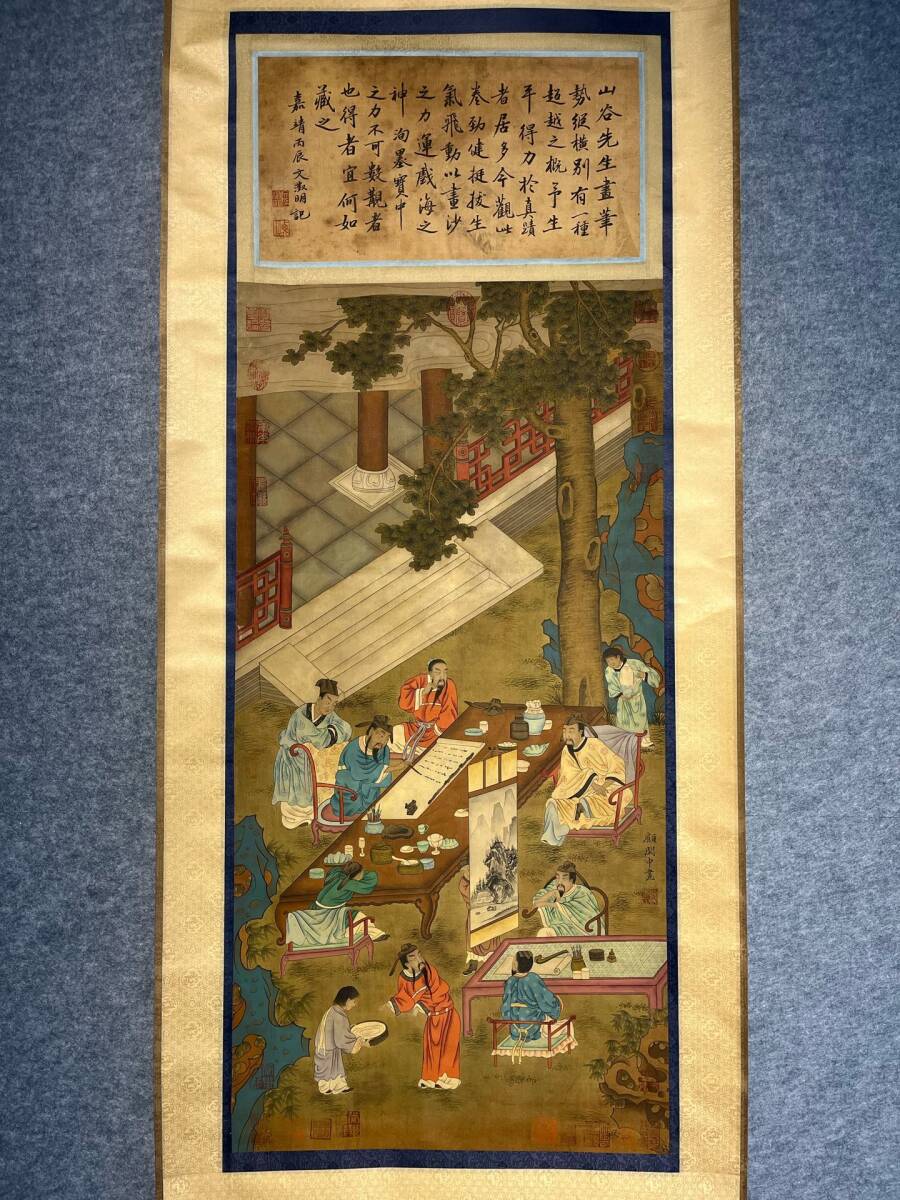 山谷先生畫筆
勢縱橫別有一種
超越之概予生
平得力於真蹟
者居多今觀此
卷勁健挺拔生
氣飛動以畫沙
之力運戲海之
神洵墨寶中
之力不可數觀者
也得者宜何如
藏之
嘉靖丙辰文徵明記
顧閎中畫